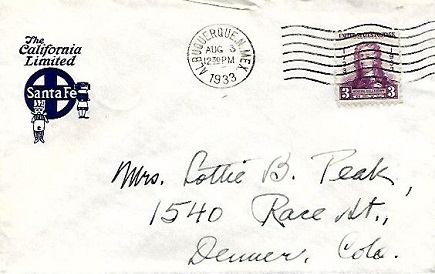 The
California
Limited
Santa Fe
ALBUQUERQUE, N. MEX.
AUG 3
12 30 PM
1933
UNITED STATES POSTAGE
3 3
Mrs. Lottie B. Peak,
1540 Race St.,
Denver, Colo.